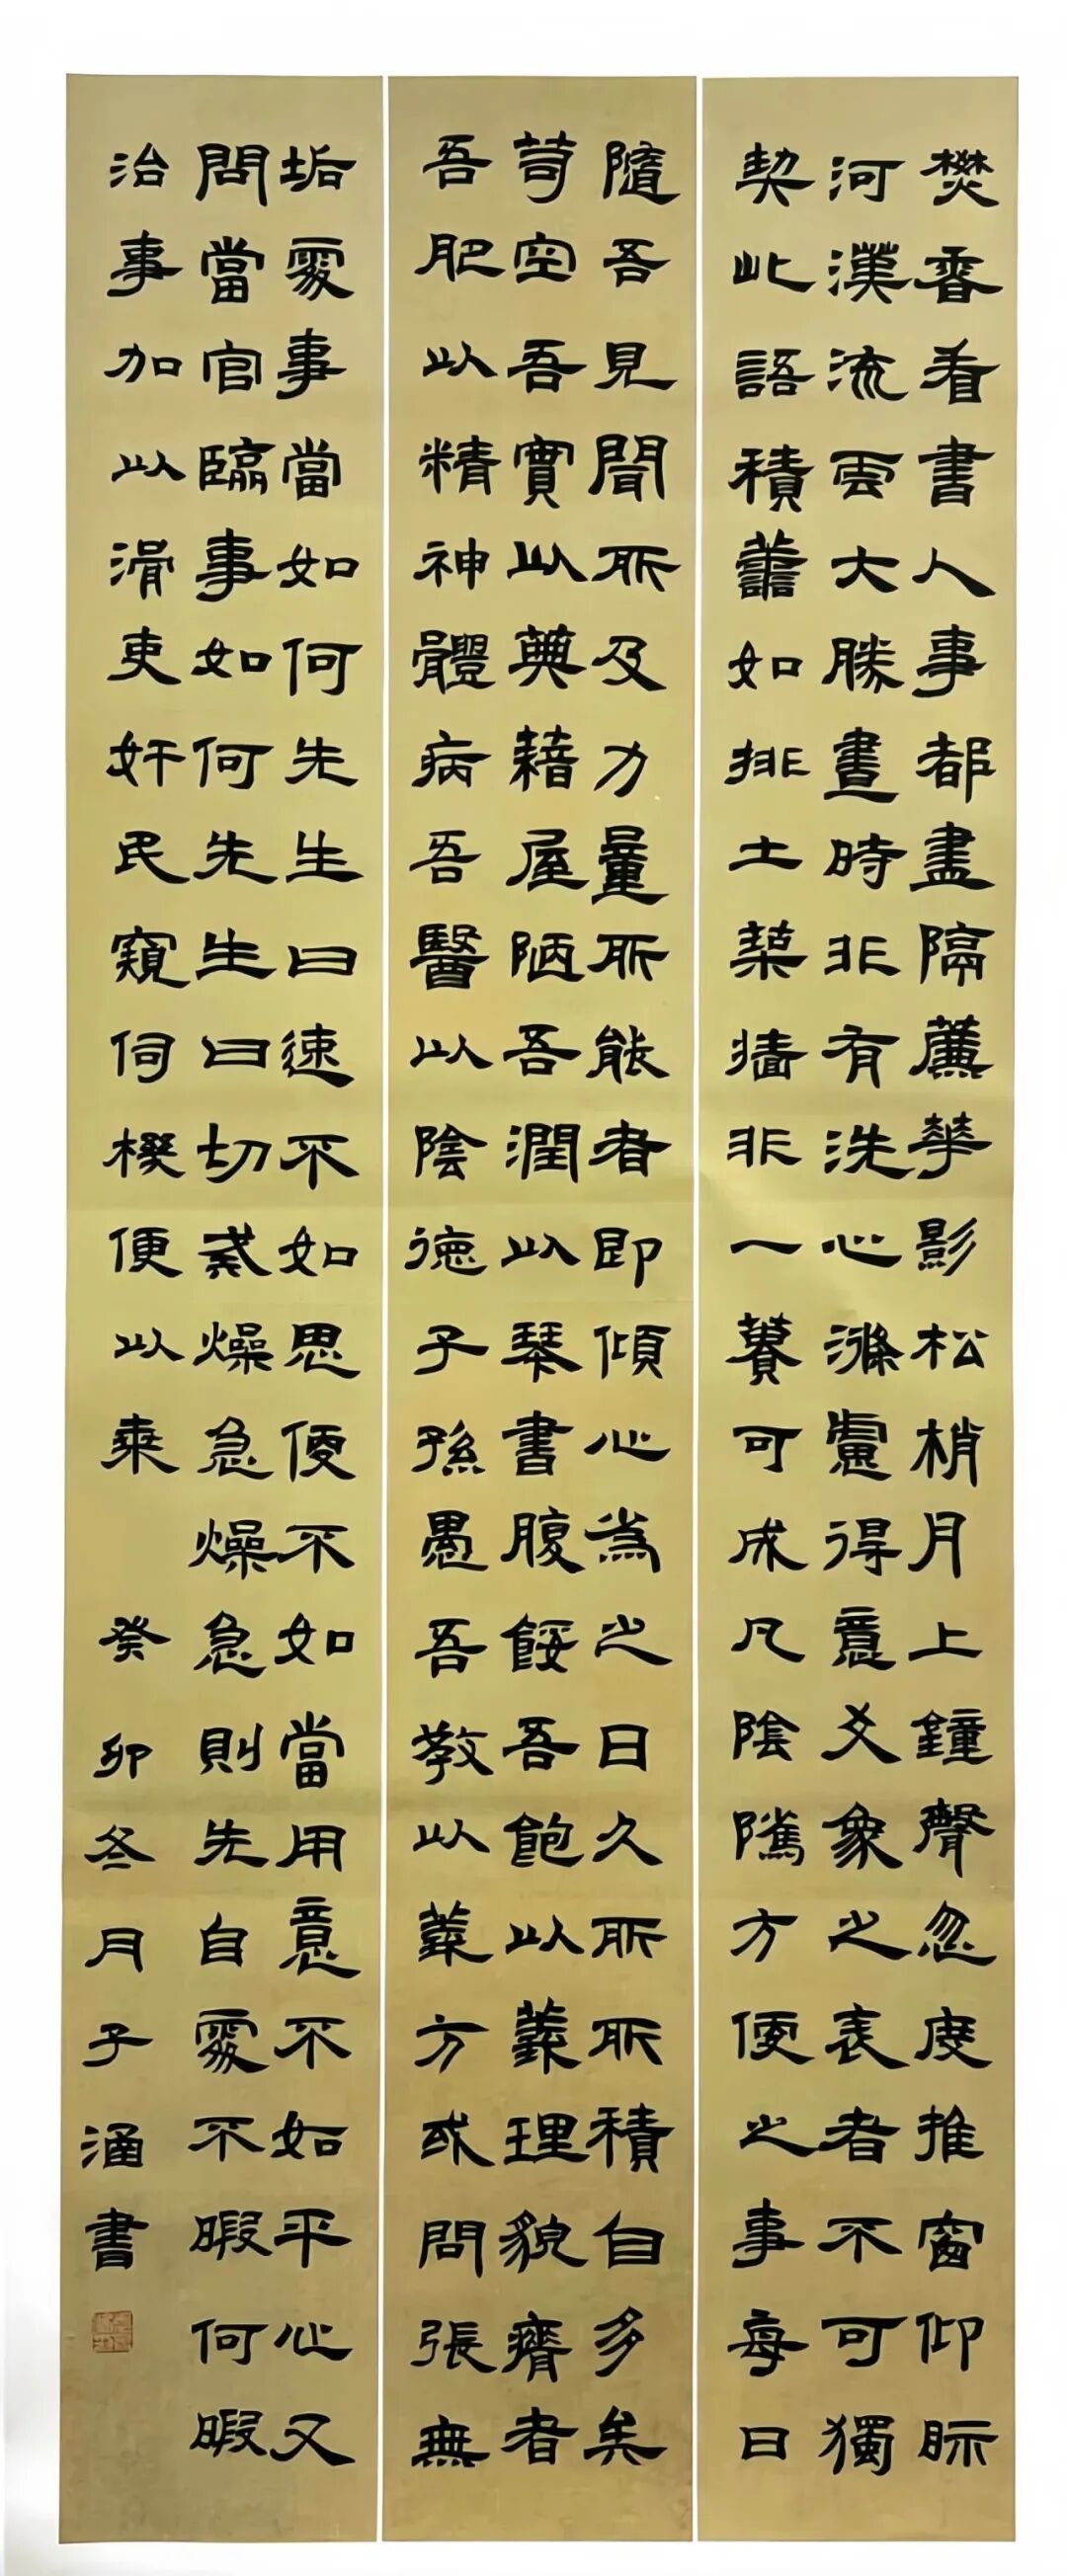 焚香看書人事都盡隔簾華影松梢月上鐘聲忽度推窗仰眎
河漢流雲大勝晝時非有洗心滌慮得意爻象之表者不可獨
契此語積善如挑土築墻非一蕢可成凡陰騭方便之事每日
隨吾見聞所及力量所能者即傾心為之日久所所積自多矣
苟空吾實以典藉屋陋吾潤以琴書腹餒吾飽以義理貌瘠者
吾肥以精神體病吾醫以陰德子孫愚吾教以義方或問張無
垢處事當如何先生曰速不如思便不如當用意不如平心又
問當官臨事如何先生曰切戒燥急燥急則先自處不暇何暇
治事加以滑吏奸民窺伺機便以来 癸卯冬月子涵書